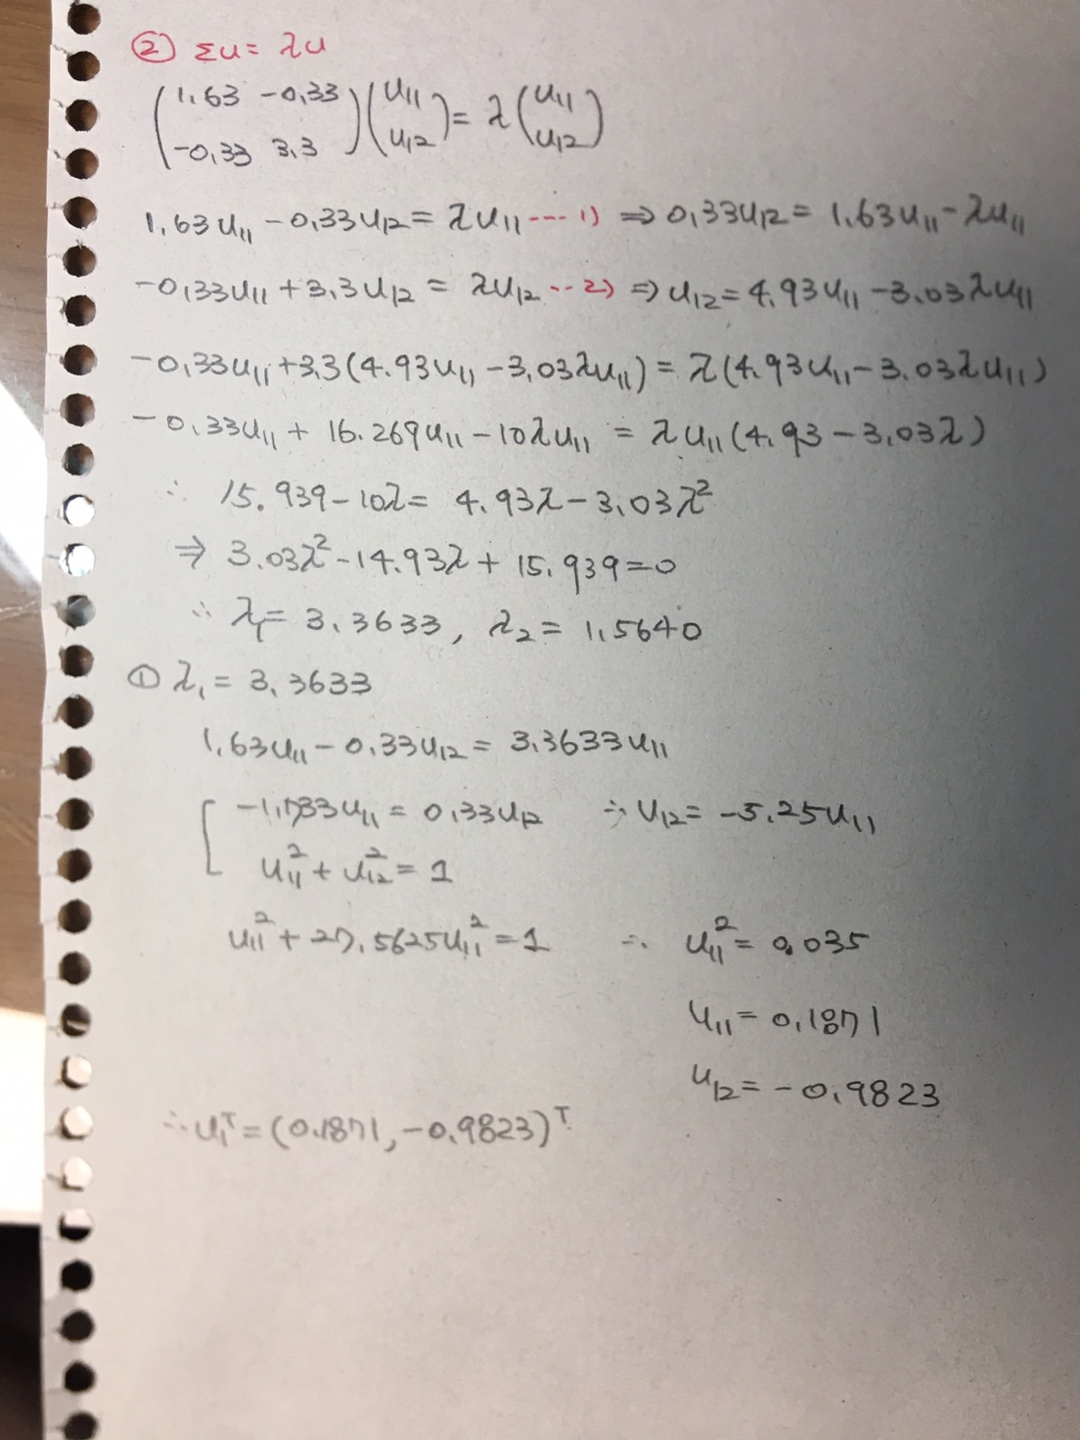 ② Σu = λu
(1.63 -0.33
-0.33 3.3) (u11
u12) = λ (u11
u12)
1.63u11 - 0.33u12 = λu11 ---- 1) ⇒ 0.33u12 = 1.63u11 - λu11
-0.33u11 + 3.3u12 = λu12 --- 2) ⇒ u12 = 4.93u11 - 3.03λu11
-0.33u11 + 3.3(4.93u11 - 3.03λu11) = λ(4.93u11 - 3.03λu11)
-0.33u11 + 16.269u11 - 10λu11 = λu11(4.93 - 3.03λ)
∴ 15.939 - 10λ = 4.93λ - 3.03λ²
⇒ 3.03λ² - 14.93λ + 15.939 = 0
∴ λ1 = 3.3633, λ2 = 1.5640
① λ1 = 3.3633
1.63u11 - 0.33u12 = 3.3633u11
-1.7333u11 = 0.33u12 ∴ u12 = -5.25u11
u11² + u12² = 1
u11² + 27.5625u11² = 1 ∴ u11² = 0.035
u11 = 0.1871
u12 = -0.9823
∴ u1ᵀ = (0.1871, -0.9823)ᵀ